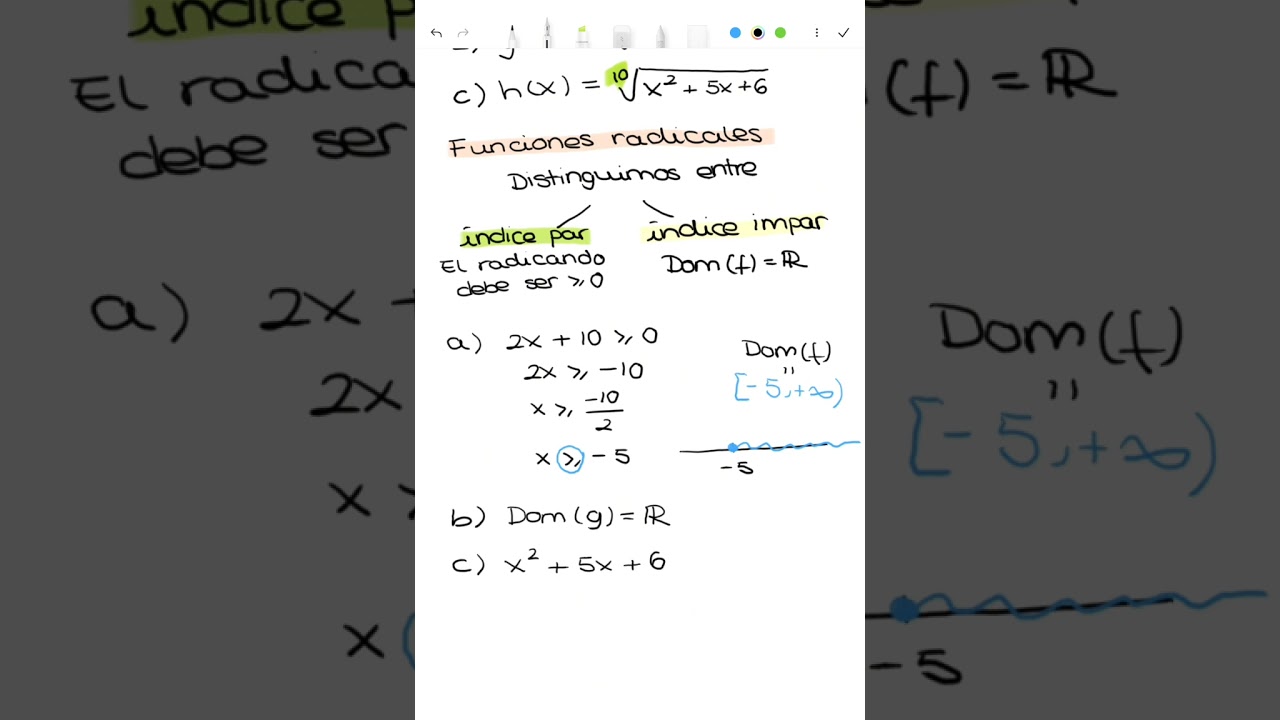 c) h(x) = ¹⁰√(x² + 5x + 6)
Funciones radicales
Distinguimos entre
índice par
índice impar
El radicando
debe ser ≥ 0
Dom(f) = ℝ
a) 2x + 10 ≥ 0
2x ≥ -10
x ≥ -10/2
x ≥ -5
Dom(f)
"
[-5, +∞)
-5
b) Dom(g) = ℝ
c) x² + 5x + 6